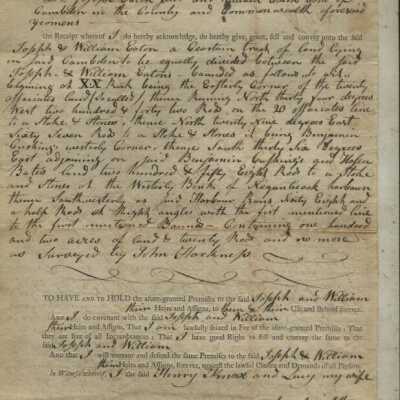 Camden in the County and Commonwealth aforesaid
yeomans
the Receipt whereof I do hereby acknowledge, do hereby give, grant, sell and convey unto the said
Joseph & William Eaton a Certain Tract of land lying
in said Cambden to be equally divided between the said
Joseph & William Eatons Bounded as follows to wit
begining at XX Rock being the Easterly Corner of the twenty
associates land so called; thence Runing North thirty four degrees
West two hundred & forty two Rod on the 20 associates line
to a Stake & Stones, thence North twenty Nine degrees East
Sixty Seven Rod to a Stake & Stones it being Benjamin
Cushing's westerly Corner, thence South thirty Six degrees
East adjoining on said Benjamin Cushing's and
Bates land two hundred & fifty Eight Rod to a Stake
and Stones at the Westerly Bank of harbour
thence Southwesterly as said Harbour Runs Sixty Eight and
a half Rods at Right angles with the first mentioned line
to the first mentioned Bounds - Containing one hundred
and two acres of land & twenty Rod and no more
as Surveyed by John Harkness
TO HAVE and to HOLD the afore-granted Premises to the said Joseph and William
their Heirs and Assigns, to them & their Use and Behoof forever.
And I do covenant with the said Joseph and William
their Heirs and Assigns, That I am lawfully seized in Fee of the afore-granted Premises; That
they are free of all Incumbrances; That I have good Right to sell and convey the same to the
said Joseph and William
And that I will warrant and defend the same Premises to the said Joseph & William
their Heirs and Assigns, forever, against the lawful Claims and Demands of all Persons.
In Witness whereof, I the said Henry Knox and Lucy my wife